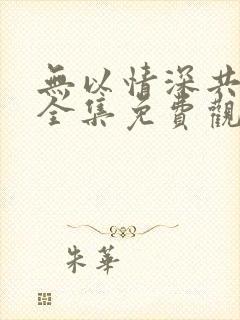 無以情深共
全集免費觀
朱華